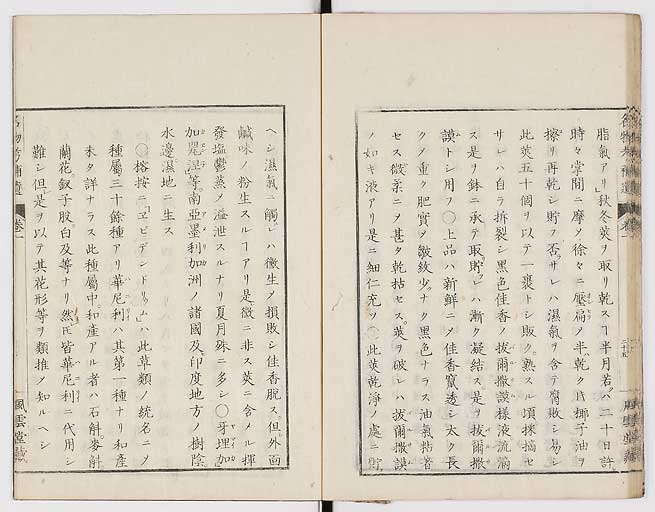 脂氣アリ秋冬莢ヲ取リ乾スヿ半月若クハ二十日許
時々掌間ニ摩メ徐々ニ壓扁メ半乾ク片椰子油ヲ
擦リ再乾シ貯フ否サレハ濕氣ヲ含テ腐敗シ易シ
此莢五十個ヲ以テ一裹トシ販ク熟スル頃採摘セ
サレハ自ラ拆裂シ黑色佳香ノ拔爾撒謨樣液流滴
ス是ヲ鉢ニ承テ取貯レハ漸ク凝結ス是ヲ拔爾撒
謨トシ用フ〇上品ハ新鮮ニメ佳香竄透シ太ク長
クメ重ク肥實メ皺紋少ナク黑色ナラス油氣粘着
セス微柔ニメ甚タ乾枯セス莢ヲ破レハ拔爾撒謨
ノ如キ液アリ是ニ細仁充ツ〇此莢乾淨ノ處ニ貯
ヘシ濕氣ニ觸レハ黴生メ損敗シ佳香脫ス但外面
鹹味ノ粉生スルヿアリ是黴ニ非ス莢ニ含メル揮
發塩鬱蒸メ溢泄スルナリ夏月殊ニ多シ〇牙埋加
加兒涅等南亞墨利加洲ノ諸國及印度地方ノ樹陰
水邊濕地ニ生ス
〇榕按ニヱピデンドリュムハ此草類ノ統名ニメ
種屬三十餘種アリ華尼利ハ其第一種ナリ和產
未タ詳ナラス此種屬中和產アル者ハ石斛麥斛
蘭花釵子股白及等ナリ然氏皆華尼利ニ代用シ
難シ但是ヲ以テ其花形等ヲ類推メ知ルヘシ
名物考補遺
卷一
風雲堂藏